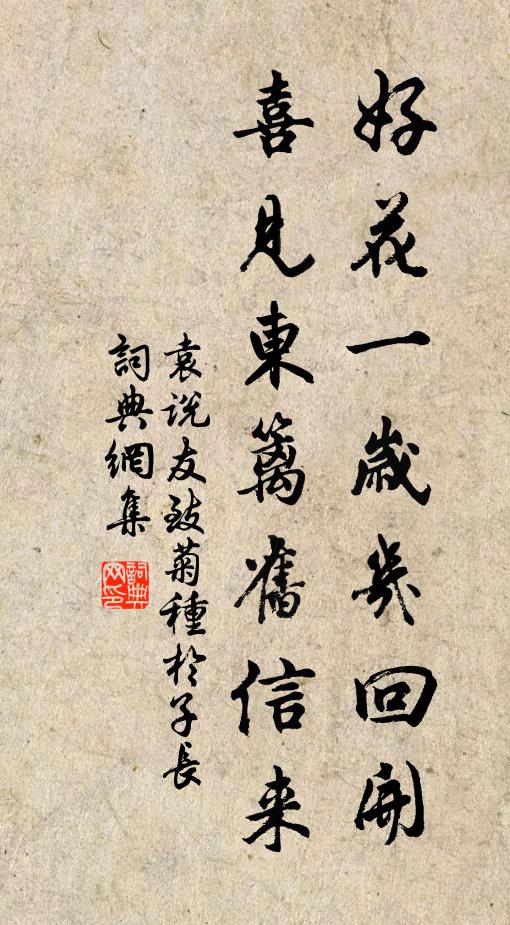 好花一歲幾回開
喜見東篱舊信来
袁説友致菊種於子長
詞典網集
詞典网印